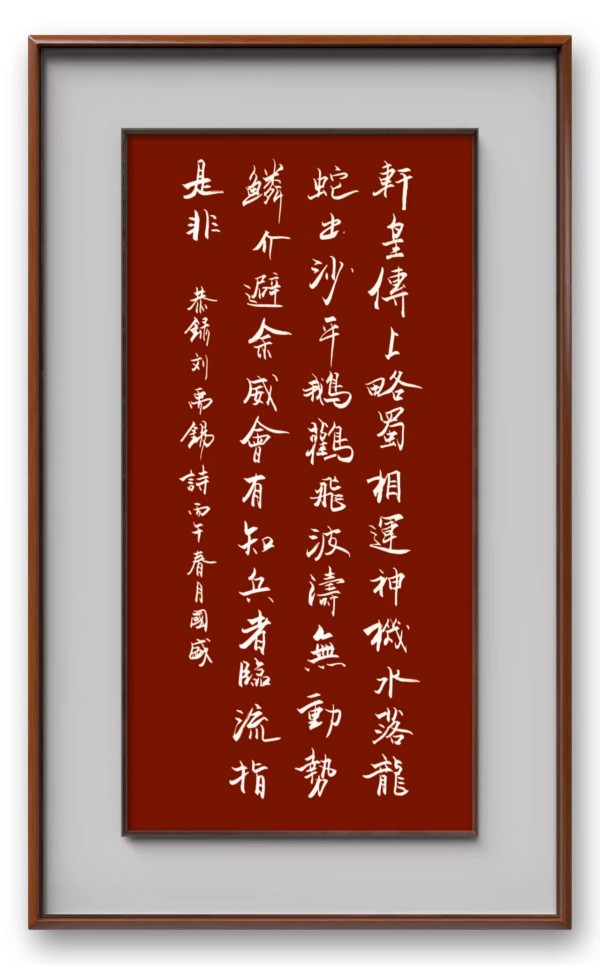 軒皇傳上略蜀相運神機水落龍
蛇出沙平鵝鸛飛波濤無動勢
鱗介避余威會有知兵者臨流指
是非
恭録刘禹錫詩丙午春月國盛